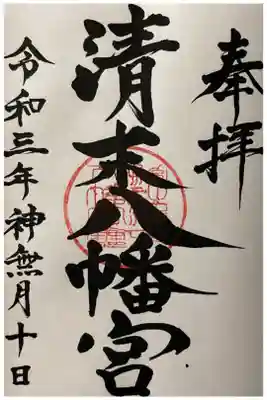 奉拝
清末八幡宮
令和三年神無月十日